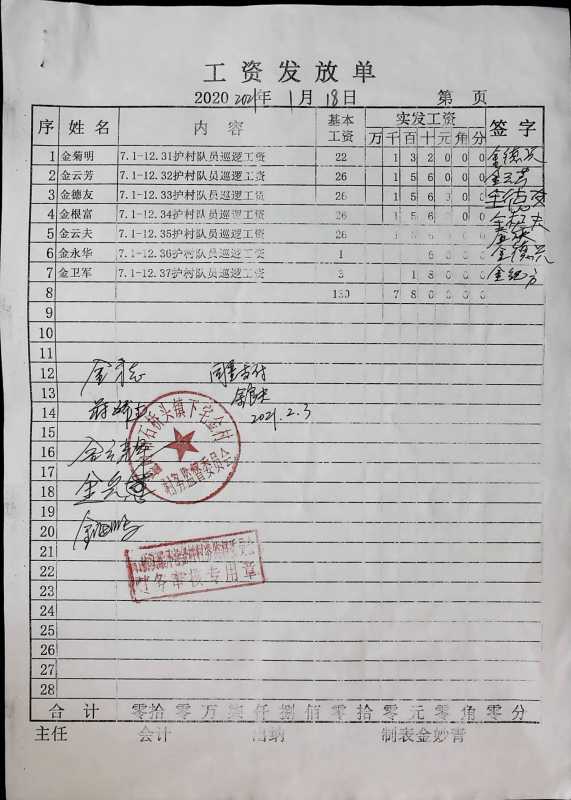 工资发放单
2020 2021年 1月 18日 第 页
序 姓名 内容 基本工资 实发工资 签字
万 千 百 十 元 角 分
1 金菊明 7.1-12.31护村队员巡逻工资 22 1 3 2 0 0 0
2 金云芳 7.1-12.32护村队员巡逻工资 26 1 5 6 0 0 0 金云芳
3 金德友 7.1-12.33护村队员巡逻工资 26 1 5 6 0 0 0
4 金根富 7.1-12.34护村队员巡逻工资 26 1 5 6 0 0 0
5 金云夫 7.1-12.35护村队员巡逻工资 26 1 5 6 0 0 0
6 金永华 7.1-12.36护村队员巡逻工资 1 6 0 0 0
7 金卫军 7.1-12.37护村队员巡逻工资 3 1 8 0 0 0
8 130 7 8 0 0 0 0
9
10
11
12 同意支付
13
14 2021.2.3
石桥头镇下宅金村
村务监督委员会
15
16
17
18
19
20
21
财务审核专用章
22
23
24
25
26
27
28
合计 零拾零万柒仟捌佰零拾零元零角零分
主任 会计 出纳 制表金妙青